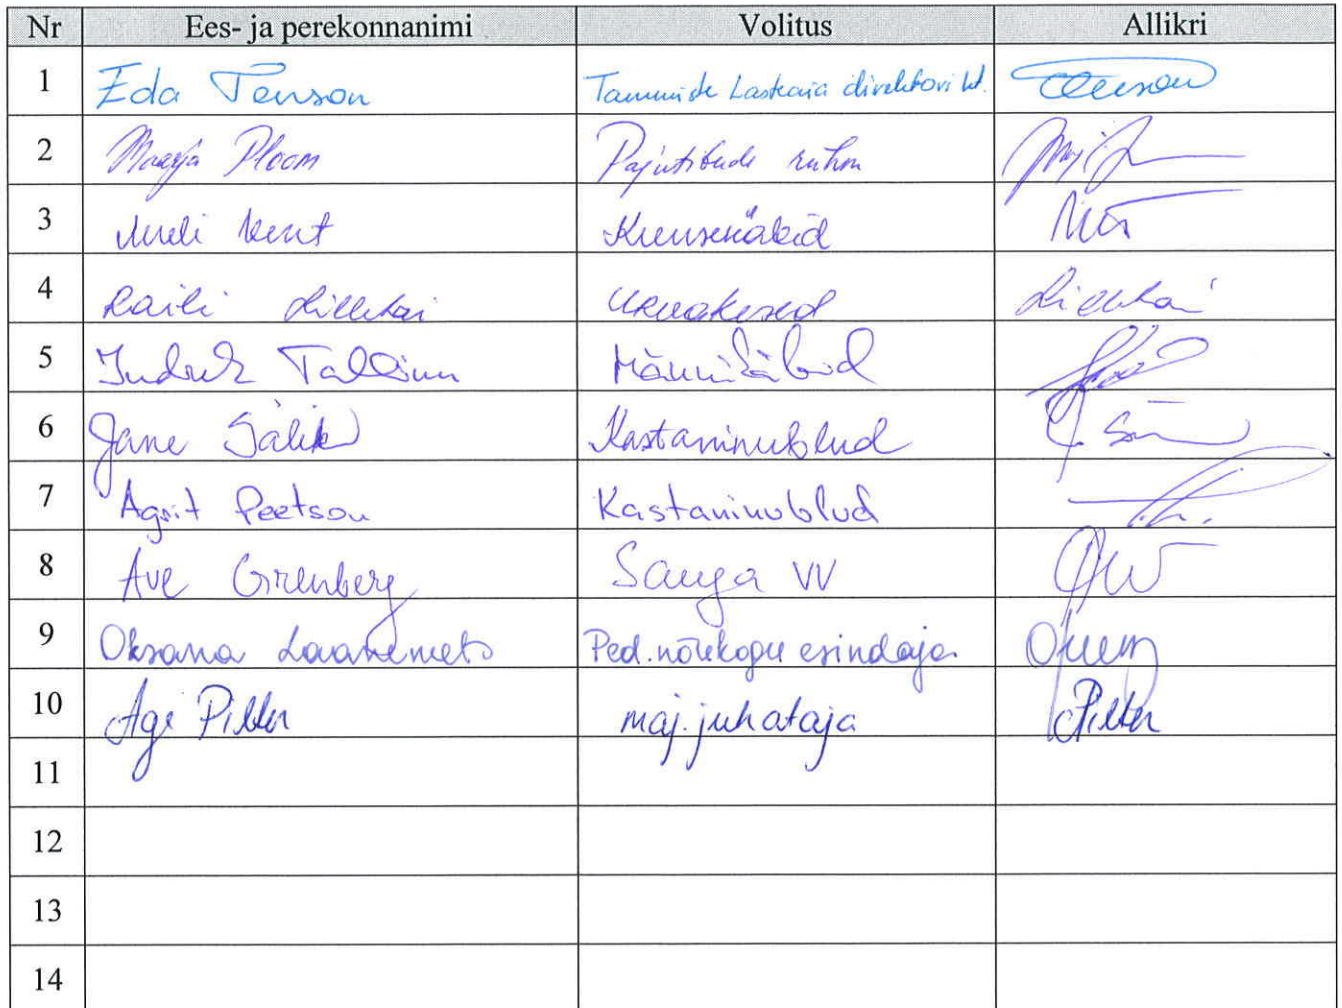 Nr Ees- ja perekonnanimi Volitus Allikri
1 Eda Tenson Tammiste Lasteaia direktori kt.
2 Maarja Ploom Pajutibude rühm
3 Kuusenäbid
4 Raili Lillekai Lillekai
5 Indrek Tallinn Männikäbid
6 Jane Sälik Kastanimublud
7 Agrit Peetson Kastaninublud
8 Ave Grenberg Sauga VV
9 Oksana Laanemets Ped.nõukogu esindaja
10 Age Piller maj.juhataja Piller
11
12
13
14